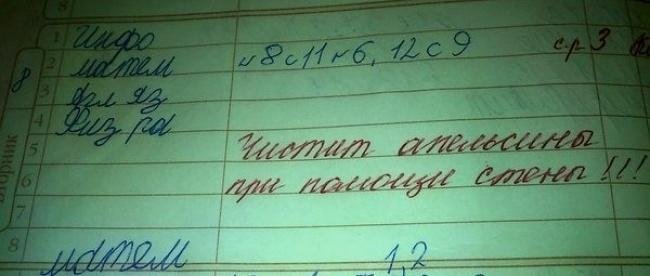 8
1 Инфо
2 матем № 8 с 11 № 6, 12 с 9 с.р 3
3 Агл яз
4 Физ ра
5 Чистит апельсины
6 при помощи стены!!!
7
8
8
Вторник
матем 1,2